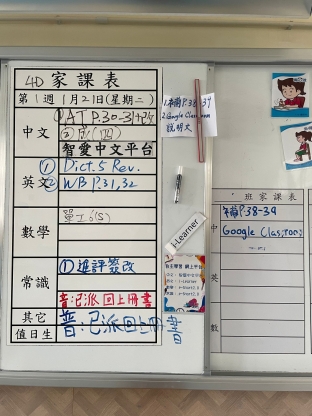 4D 家課表
第1週 1月21日(星期二)
中文
AT P.30-31+改
智愛中文平台
英文
① Dict.5 Rev.
② WB P.31,32
數學
常識
① 進評簽改
音:已派回上冊書
其它
值日生
普:已派回上冊書
P.38-39
2.Google Classroom
說明文
i-Learner
班家課表
中
P38-39
Google Classroom
英
數